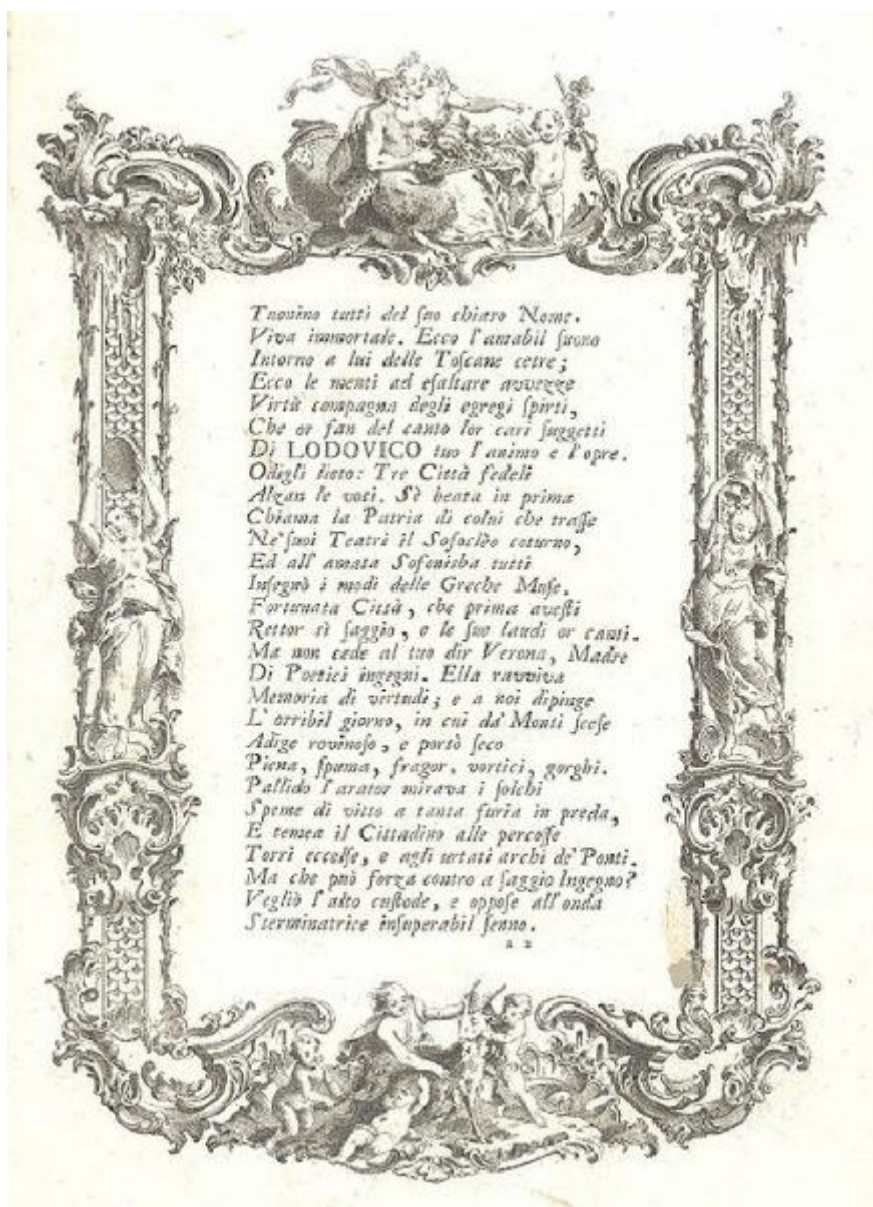 Tuonino tutti del suo chiaro Nome.
Viva immortale. Ecco l'amabil suono
Intorno a lui delle Toſcane cetre;
Ecco le menti ad eſaltare avvezze
Virtù compagna degli egregi ſpirti,
Che or fan del canto lor cari ſuggetti
Di LODOVICO tuo l'animo e l'opre.
Odigli lieto: Tre Città fedeli
Alzan le voci. Sè beata in prima
Chiama la Patria di colui che traſſe
Ne' ſuoi Teatri il Sofoclèo coturno,
Ed all' amata Sofonisba tutti
Inſegnò i modi delle Greche Muſe.
Fortunata Città, che prima aveſti
Rettor sì ſaggio, e le ſue laudi or canti.
Ma non cede al tuo dir Verona, Madre
Di Poetici ingegni. Ella ravviva
Memoria di virtudi; e a noi dipinge
L' orribil giorno, in cui da' Monti ſceſe
Adige rovinoſo, e portò ſeco
Piena, ſpuma, fragor, vortici, gorghi.
Pallido l'arator mirava i ſolchi
Speme di vitto a tanta furia in preda,
E temea il Cittadino alle percoſſe
Torri eccelſe, e agli urtati archi de' Ponti.
Ma che può forza contro a ſaggio Ingegno?
Vegliò l'alto cuſtode, e oppoſe all'onda
Sterminatrice inſuperabil ſenno.
a 2